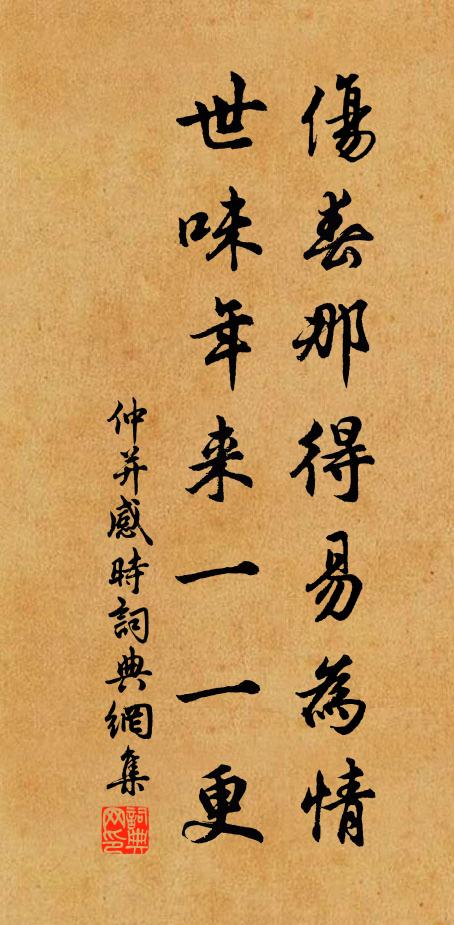 傷春那得易為情
世味年来一一更
仲并感時詞典網集
詞典网印